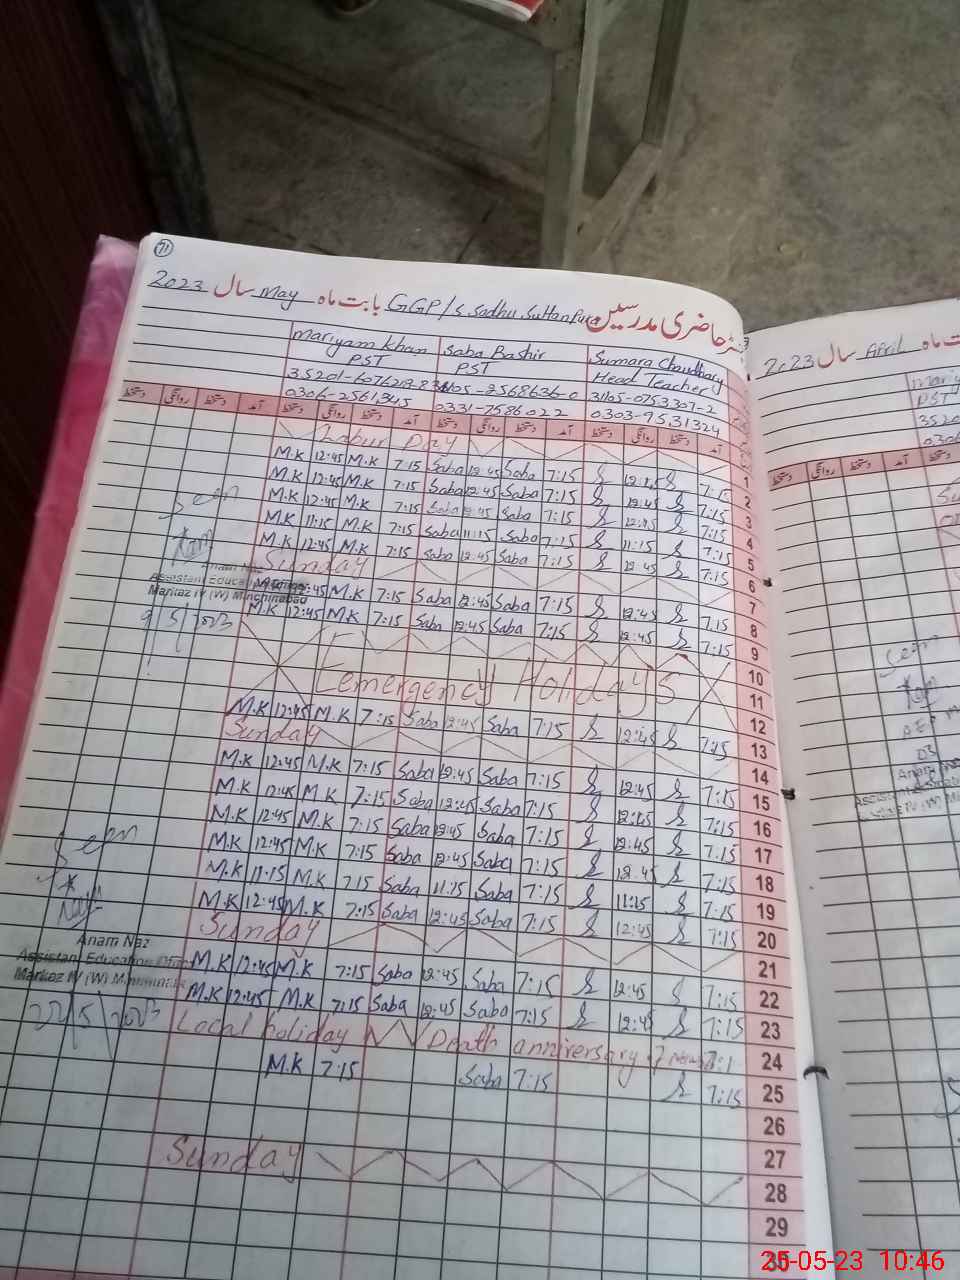 71
رجسٹر حاضری مدرسین GGP/S Sadhu Sultan Pura بابت ماہ May سال 2023
mariyam khan Saba Bashir Sumara Chaudhary
PST PST Head Teacher
31105-0753307-2
0306-2561345 0331-7586022 0303-9531324
دستخط روانگی دستخط آمد دستخط روانگی دستخط آمد دستخط روانگی دستخط آمد دستخط روانگی دستخط آمد
Labur Day 1
M.K 12:45 M.K 7:15 Saba 12:45 Saba 7:15 12:45 7:15 2
M.K 12:45 M.K 7:15 Saba 12:45 Saba 7:15 12:45 7:15 3
M.K 12:45 M.K 7:15 Saba 12:45 Saba 7:15 12:45 7:15 4
M.K 11:15 M.K 7:15 Saba 11:15 Saba 7:15 11:15 7:15 5
M.K 12:45 M.K 7:15 Saba 12:45 Saba 7:15 12:45 7:15 6
Sunday 7
M.K 12:45 M.K 7:15 Saba 12:45 Saba 7:15 12:45 7:15 8
M.K 12:45 M.K 7:15 Saba 12:45 Saba 7:15 12:45 7:15 9
10
Emergency Holidays 11
12
M.K 12:45 M.K 7:15 Saba 12:45 Saba 7:15 12:45 7:15 13
Sunday 14
M.K 12:45 M.K 7:15 Saba 12:45 Saba 7:15 12:45 7:15 15
M.K 12:45 M.K 7:15 Saba 12:45 Saba 7:15 12:45 7:15 16
M.K 12:45 M.K 7:15 Saba 12:45 Saba 7:15 12:45 7:15 17
M.K 12:45 M.K 7:15 Saba 12:45 Saba 7:15 12:45 7:15 18
M.K 11:15 M.K 7:15 Saba 11:15 Saba 7:15 11:15 7:15 19
M.K 12:45 M.K 7:15 Saba 12:45 Saba 7:15 12:45 7:15 20
Sunday 21
M.K 12:45 M.K 7:15 Saba 12:45 Saba 7:15 12:45 7:15 22
M.K 12:45 M.K 7:15 Saba 12:45 Saba 7:15 12:45 7:15 23
Local holiday Death anniversary 24
M.K 7:15 Saba 7:15 7:15 25
26
27
Sunday 28
29
30
Seen
Anam Naz
Assistant Education Officer
Markaz IV (W) Minchinabad
9/5/2023
Seen
Anam Naz
Assistant Education Officer
Markaz IV (W) Minchinabad
22/5/2023
ماہ April سال 2023
PST
دستخط روانگی دستخط آمد دستخط
Seen
25-05-23 10:46